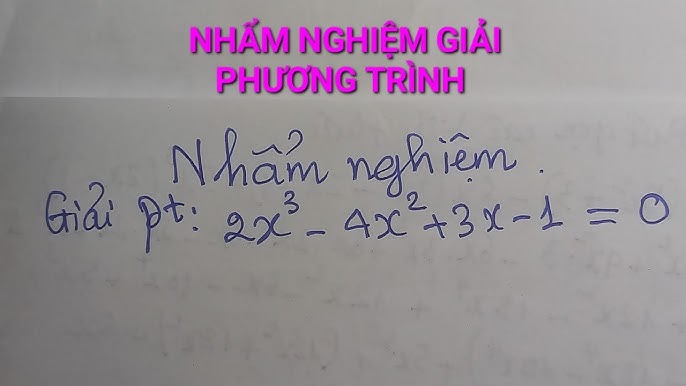 NHẨM NGHIỆM GIẢI
PHƯƠNG TRÌNH
Nhẩm nghiệm.
Giải pt: 2x³ - 4x² + 3x - 1 = 0